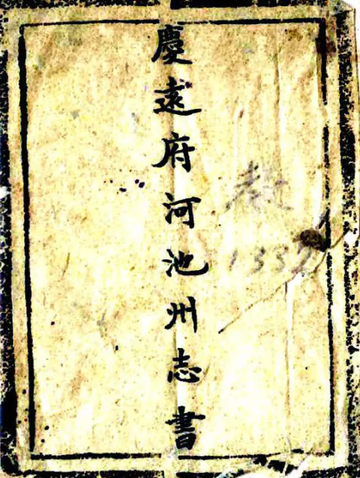 慶遠府河池州志書
1332